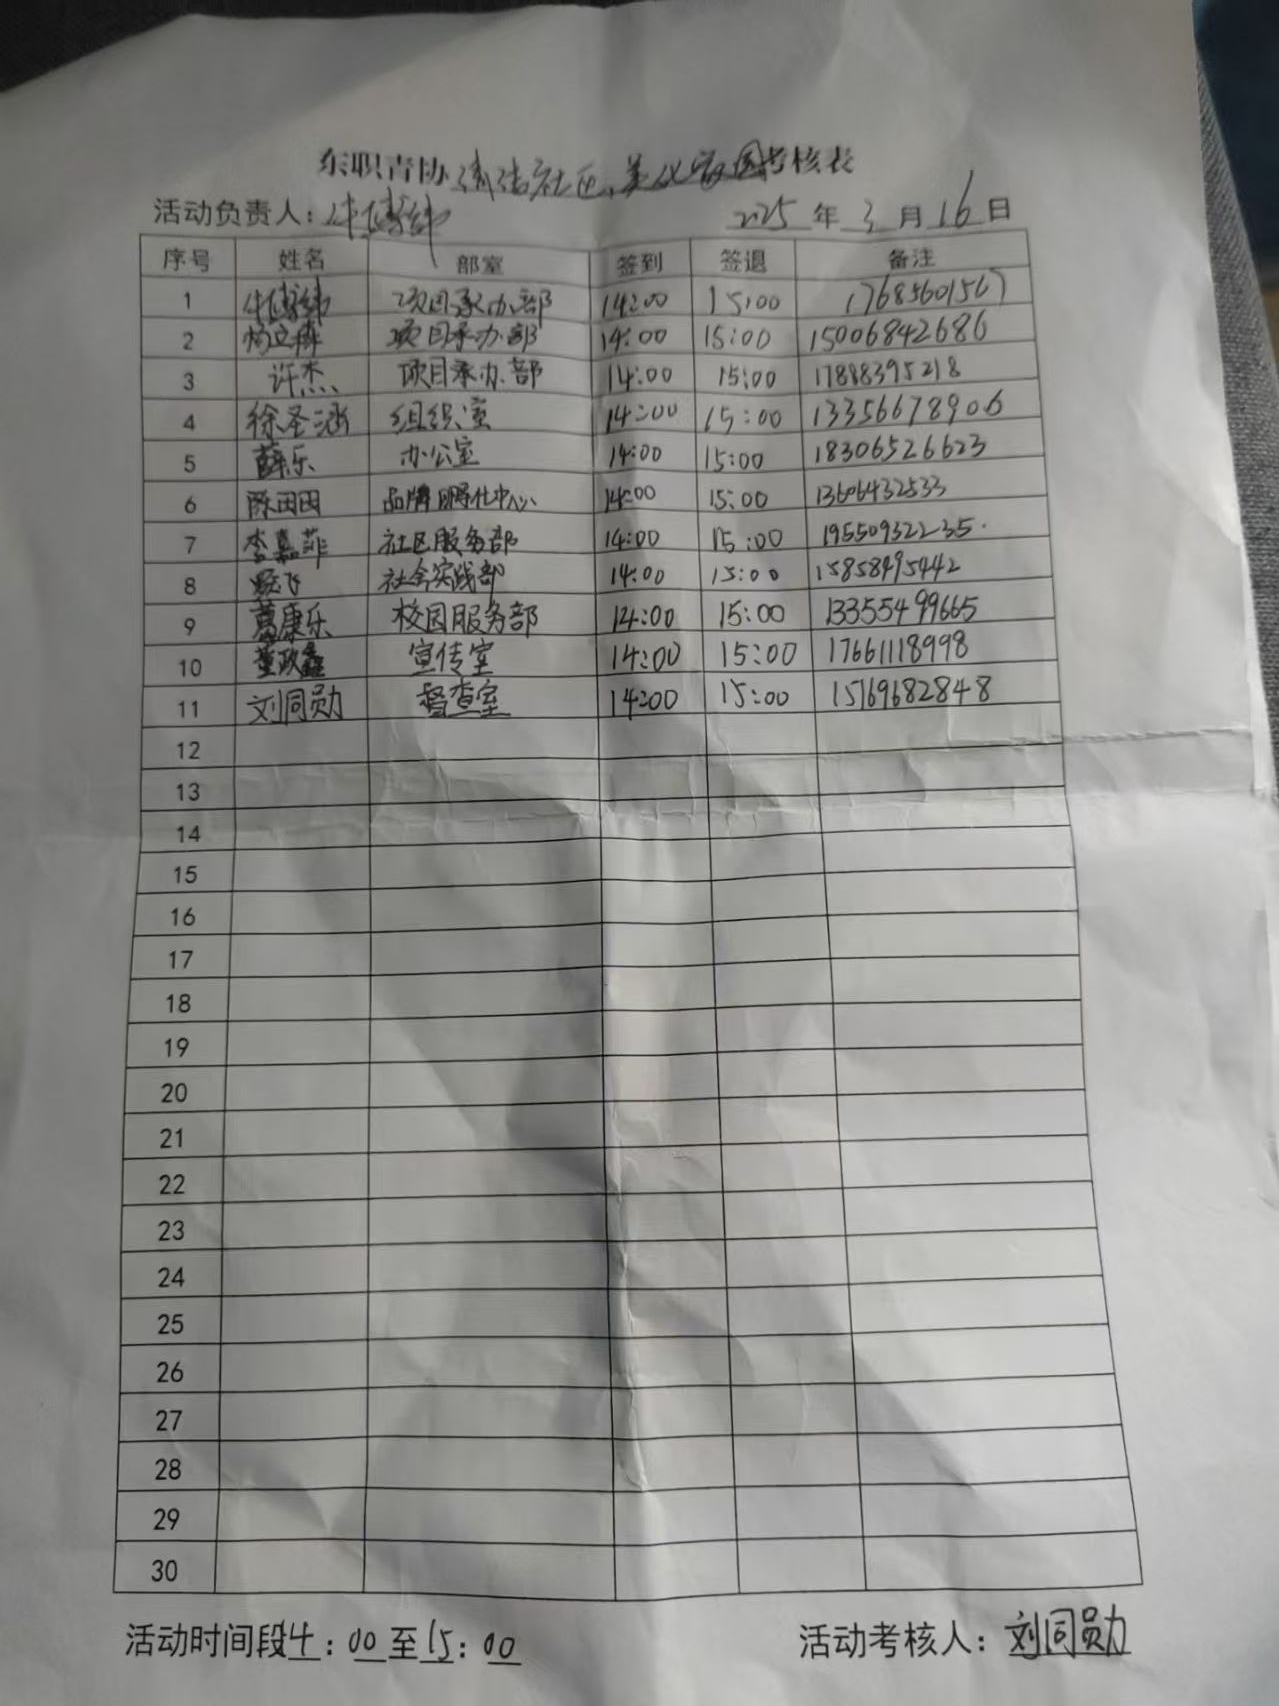 东职青协清洁社区,美化家园考核表
活动负责人: 2025年3月16日
序号 姓名 部室 签到 签退 备注
1 项目承办部 14:00 15:00 17685601567
2 杨立森 项目承办部 14:00 15:00 15006842686
3 许杰 项目承办部 14:00 15:00 17888395218
4 徐圣涵 组织室 14:00 15:00 13356678906
5 薛乐 办公室 14:00 15:00 18306526623
6 陈田田 品牌孵化中心 14:00 15:00 13606432533
7 李嘉菲 社区服务部 14:00 15:00 19550932235.
8 社会实践部 14:00 15:00 15858495442
9 葛康乐 校园服务部 14:00 15:00 13355499665
10 董政鑫 宣传室 14:00 15:00 17661118998
11 刘同勋 督查室 14:00 15:00 15169682848
12
13
14
15
16
17
18
19
20
21
22
23
24
25
26
27
28
29
30
活动时间段14:00至15:00 活动考核人:刘同勋